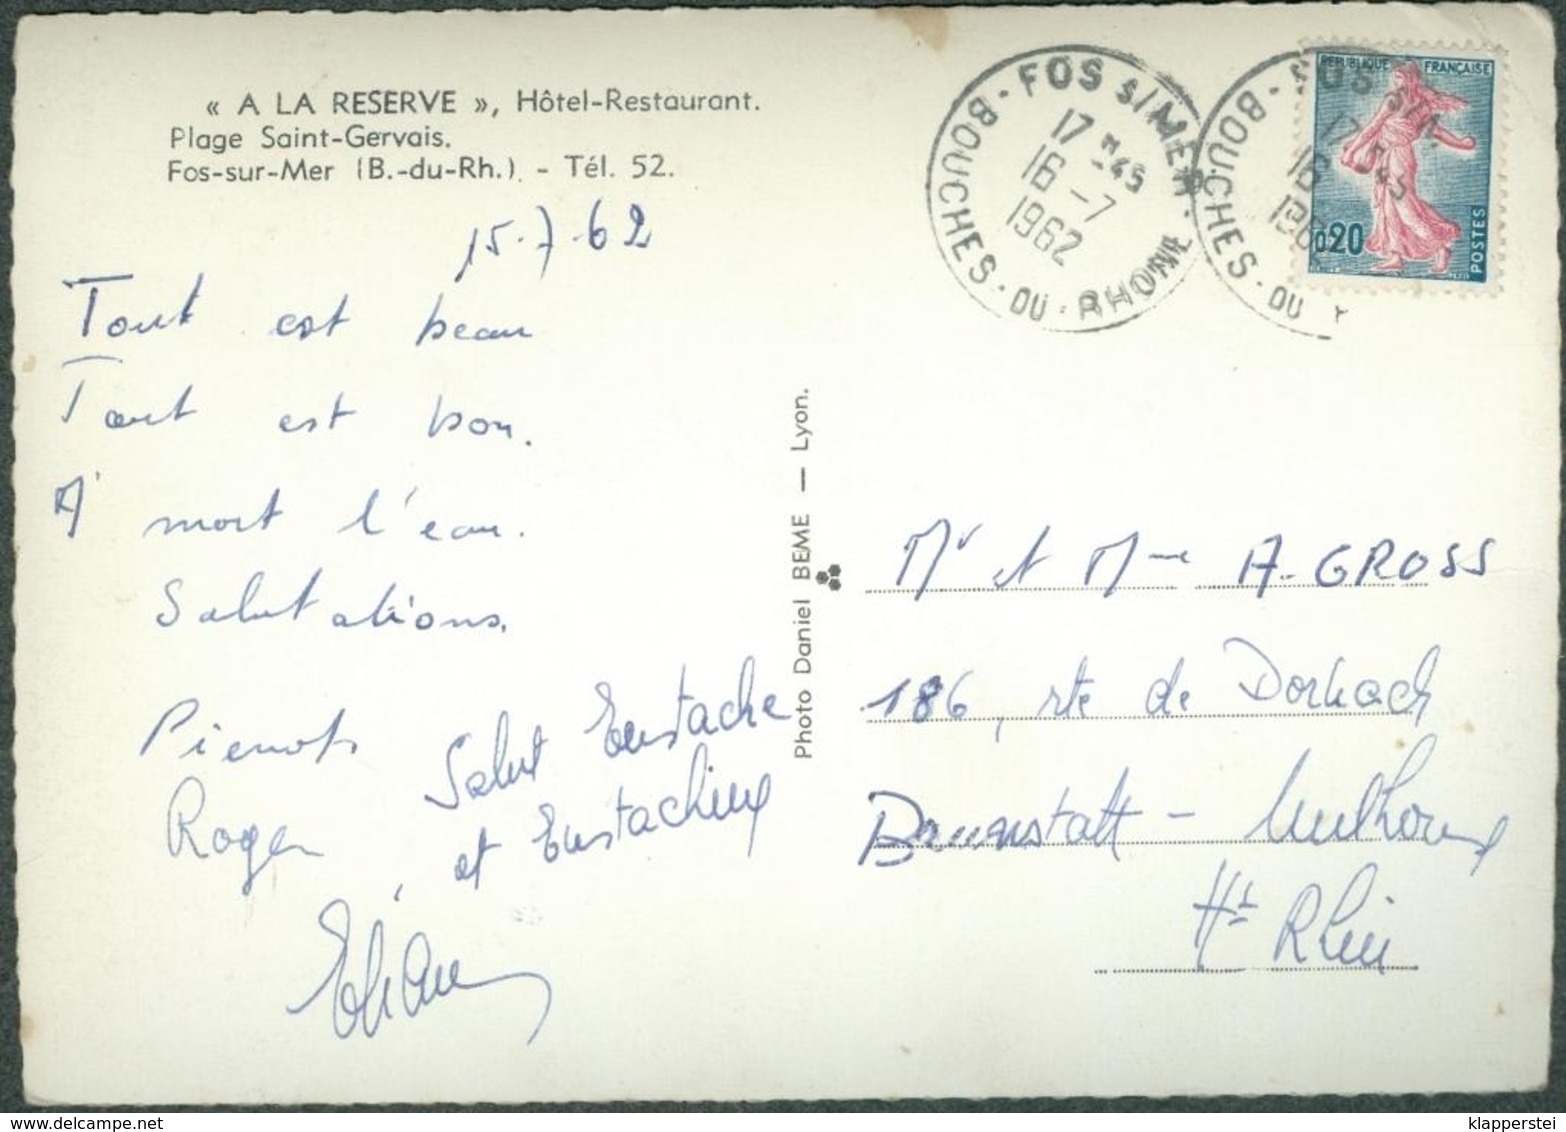 « A LA RESERVE », Hôtel-Restaurant.
Plage Saint-Gervais.
Fos-sur-Mer (B.-du-Rh.) - Tél. 52.
15.7.62
Tout est beau
Tout est bon.
A mort l'eau.
Salutations.
Pierrot
Roger
Salut Eustache
et Eustachine
Photo Daniel BEME — Lyon.
FOS s/MER
17 H 45
16 - 7
1962
BOUCHES · DU · RHONE
REPUBLIQUE FRANÇAISE
0,20
POSTES
Mr et Mme A. GROSS
186, rte de Dornach
Brunnstatt - Mulhouse
Ht Rhin
klapperstei